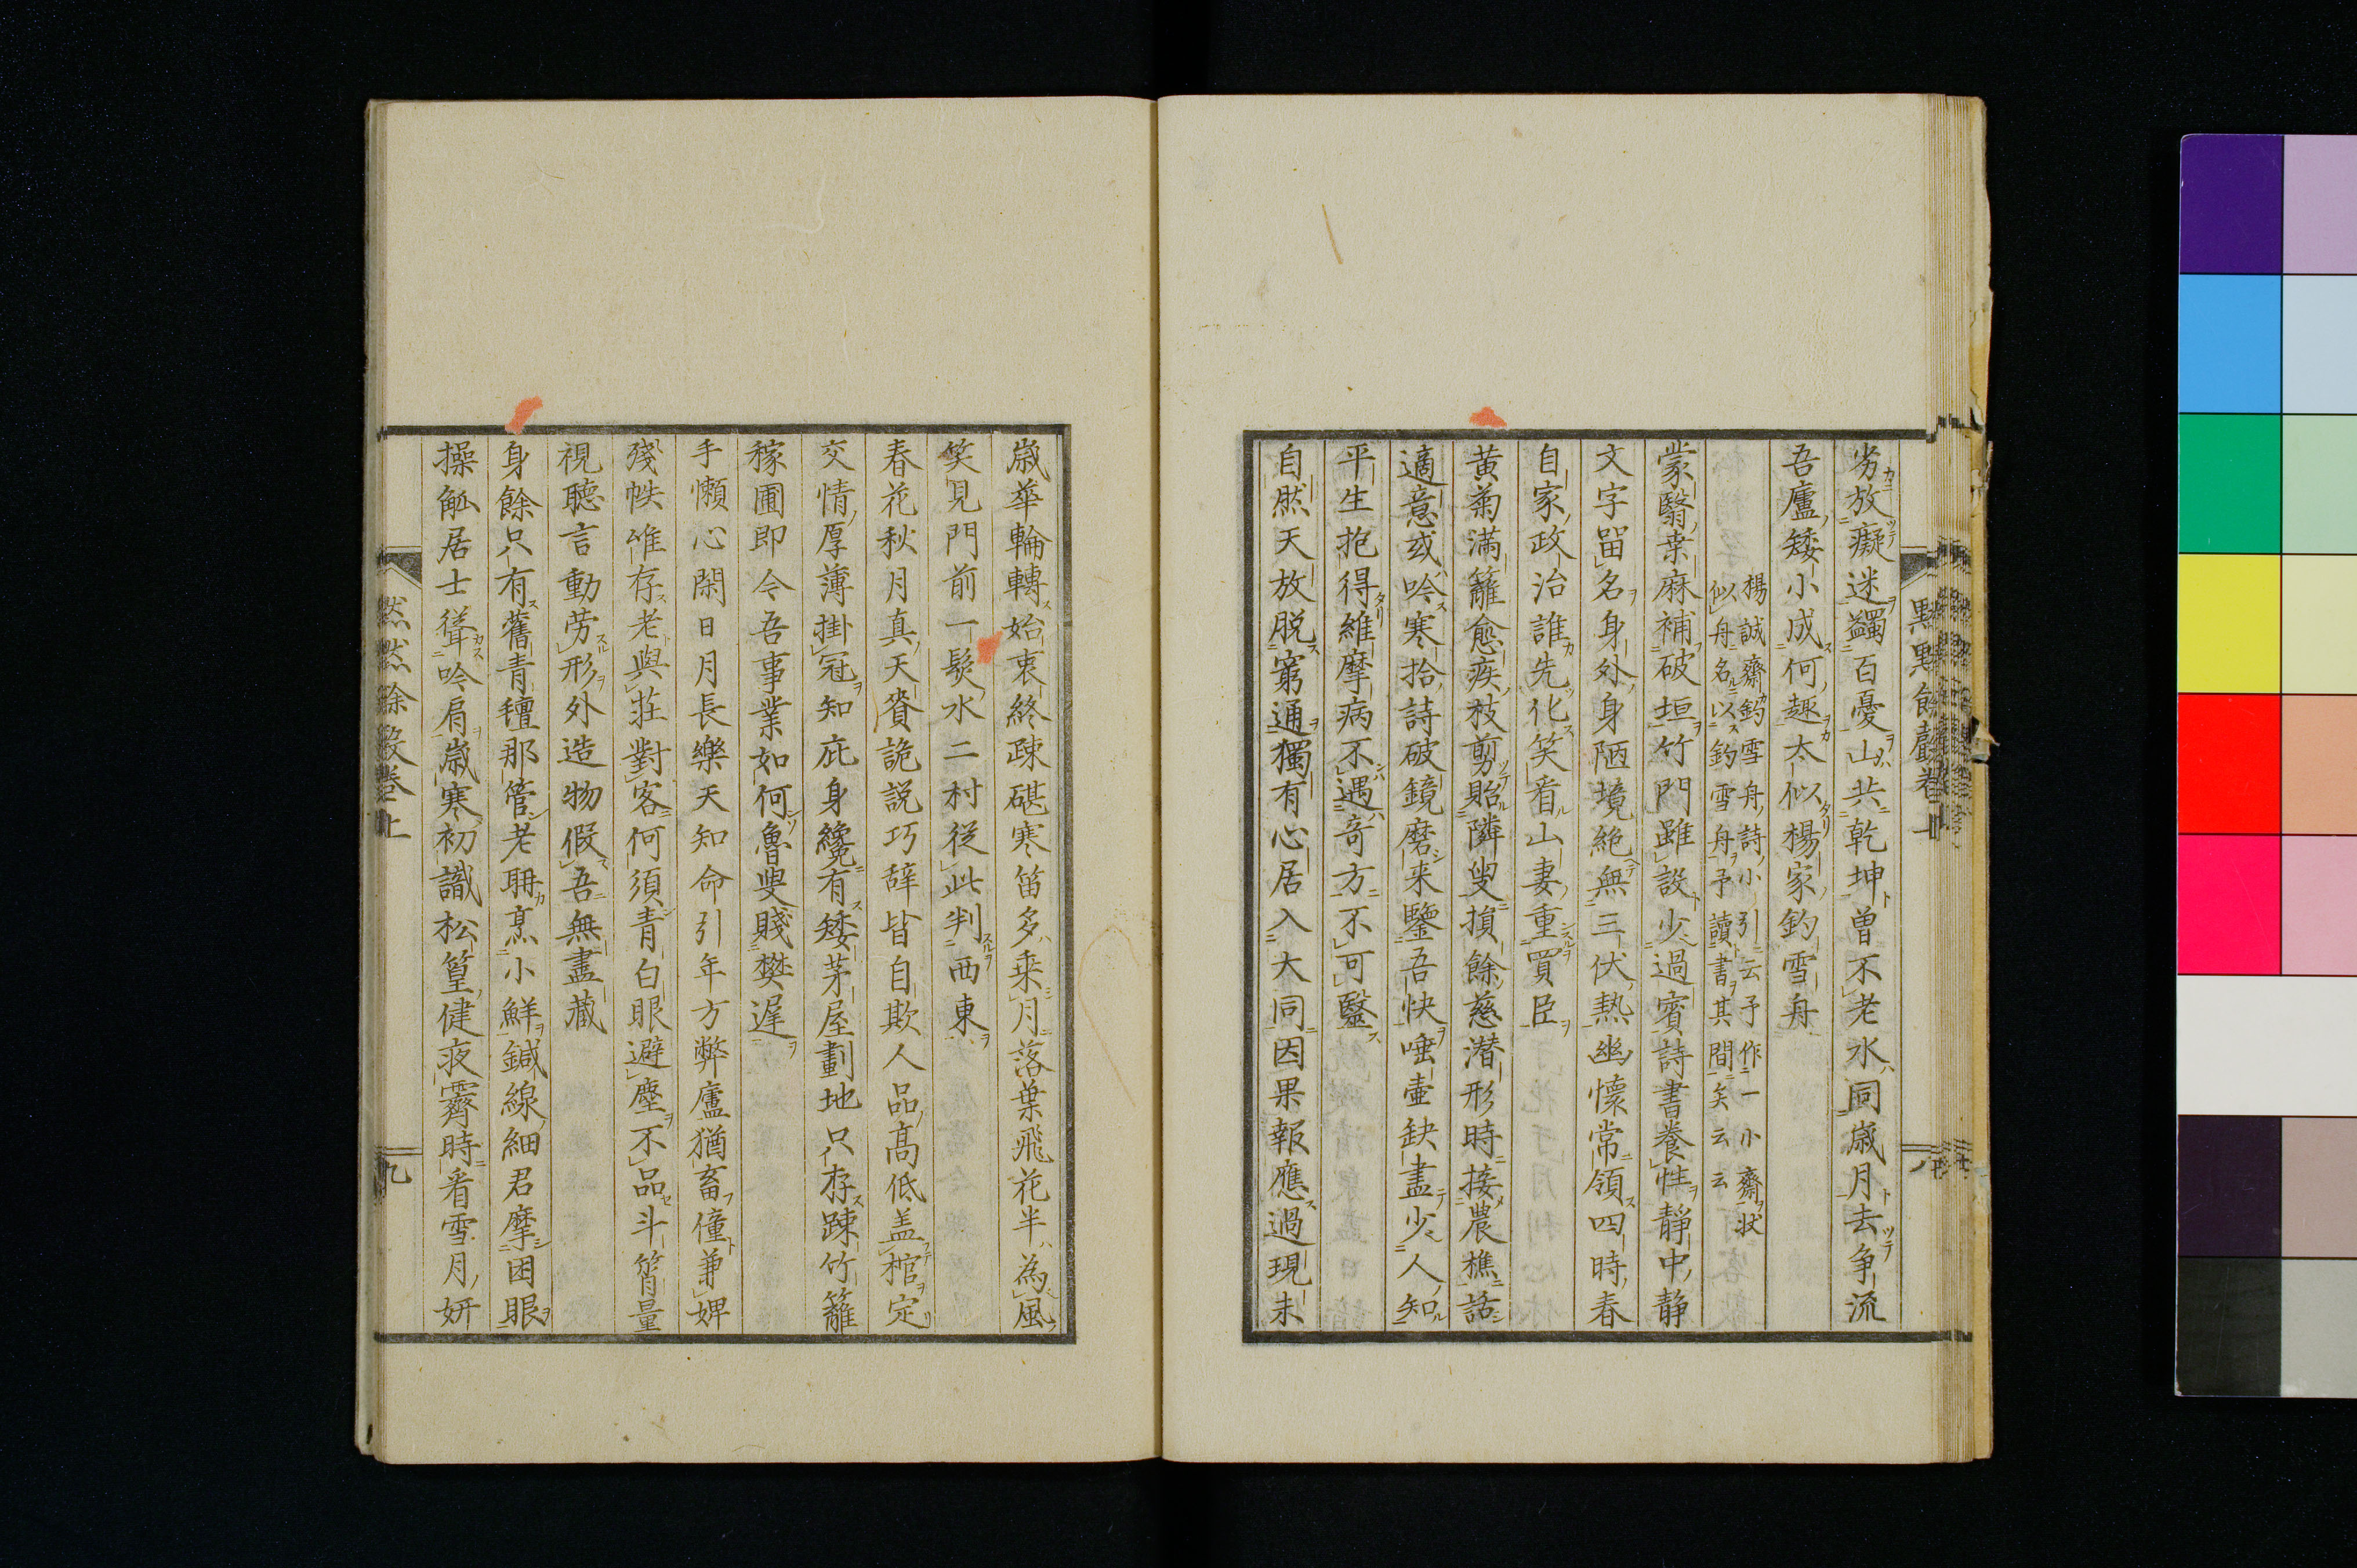 劣放癡迷蠲百憂山共乾坤曽不老水同歳月去争流
吾廬矮小成何趣太似楊家釣雪舟
楊誠齋釣雪舟詩小引云予作一小齋状
似舟名以釣雪舟予讀書其間矣云云
蒙翳桒麻補破垣竹門雖設少過賓詩書養性静中静
文字留名身外身陋境絶無三伏熱幽懷常領四時春
自家政治誰先化笑看山妻重買臣
黄菊満籬愈疾枝剪貽隣叟損餘慈潜形時接農樵話
適意或吟寒拾詩破鏡磨来鑒吾快唾壷缺盡少人知
平生抱得維摩病不遇竒方不可毉
自然天放脱窮通獨有心居入大同因果報應過現未
黙黙餘聲巻上
八
歳華輪轉始衷終疎碪寒笛多乗月落葉飛花半為風
笑見門前一髪水二村従此判西東
春花秋月真天賚詭説巧辞皆自欺人品高低盖棺定
交情厚薄掛冠知庇身纔有矮茅屋劃地只存踈竹籬
稼圃即今吾事業如何魯叟賤樊遅
手懶心閑日月長樂天知命引年方弊廬猶畜僮兼婢
殘帙唯存老與莊對客何須青白眼避塵不品斗筲量
視聴言動労形外造物假吾無盡蔵
身餘只有舊青氊那管老耼烹小鮮鍼線細君摩困眼
操觚居士聳吟肩歳寒初識松篁健夜霽時看雪月妍
九